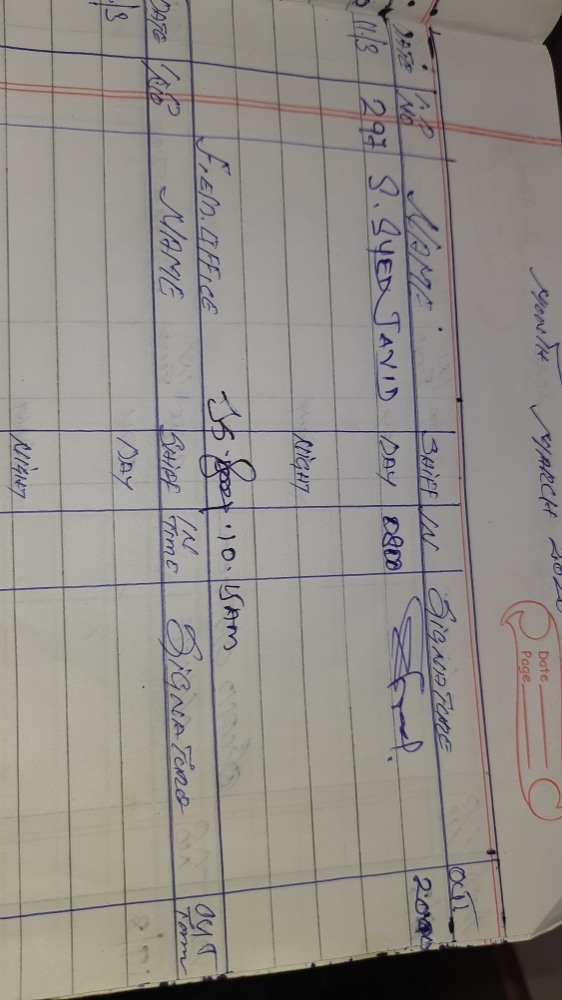 MONTH MARCH
Date
Page
DATE I.D NO NAME SHIFT IN SIGNATURE OUT
11/3 297 S. SYED JAVID DAY 0800 2000
NIGHT
F.E.M. OFFICE 10.15AM
DATE I.D NO NAME SHIFT IN Time SIGNATURE OUT Time
/3 DAY
NIGHT